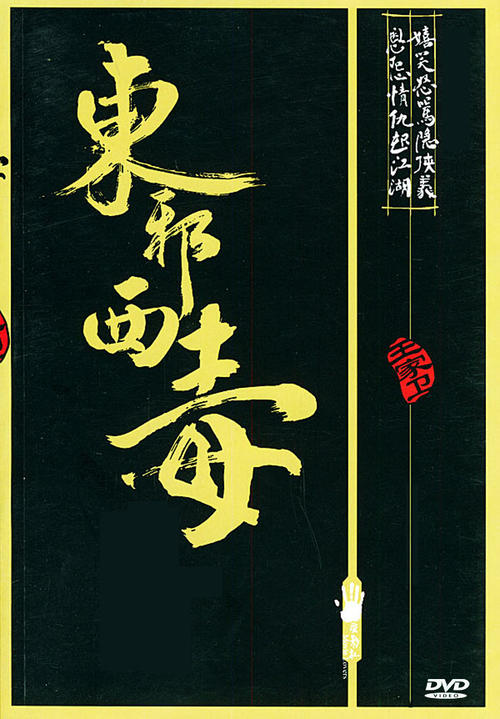 東邪西毒
嬉笑怒罵隐侠義
恩怨情仇起江湖
王家卫
DVD
VIDEO